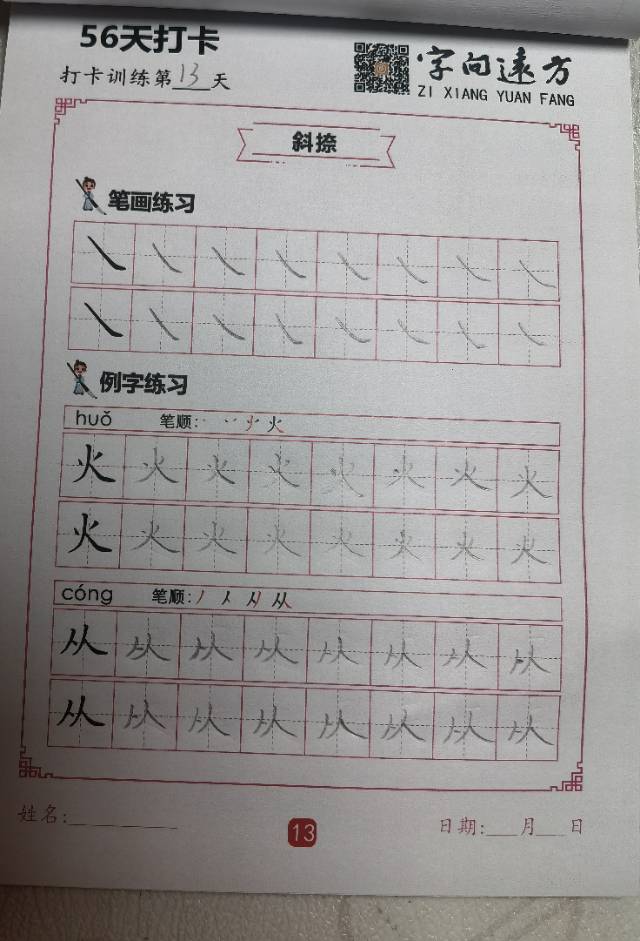 56天打卡
打卡训练第13天
字向远方
ZI XIANG YUAN FANG
斜捺
笔画练习
例字练习
huǒ 笔顺: 火
火 火 火 火 火 火 火 火
火 火 火 火 火 火 火 火
cóng 笔顺: 丿 人 从
从 从 从 从 从 从 从 从
从 从 从 从 从 从 从 从
姓名:
13
日期: 月 日